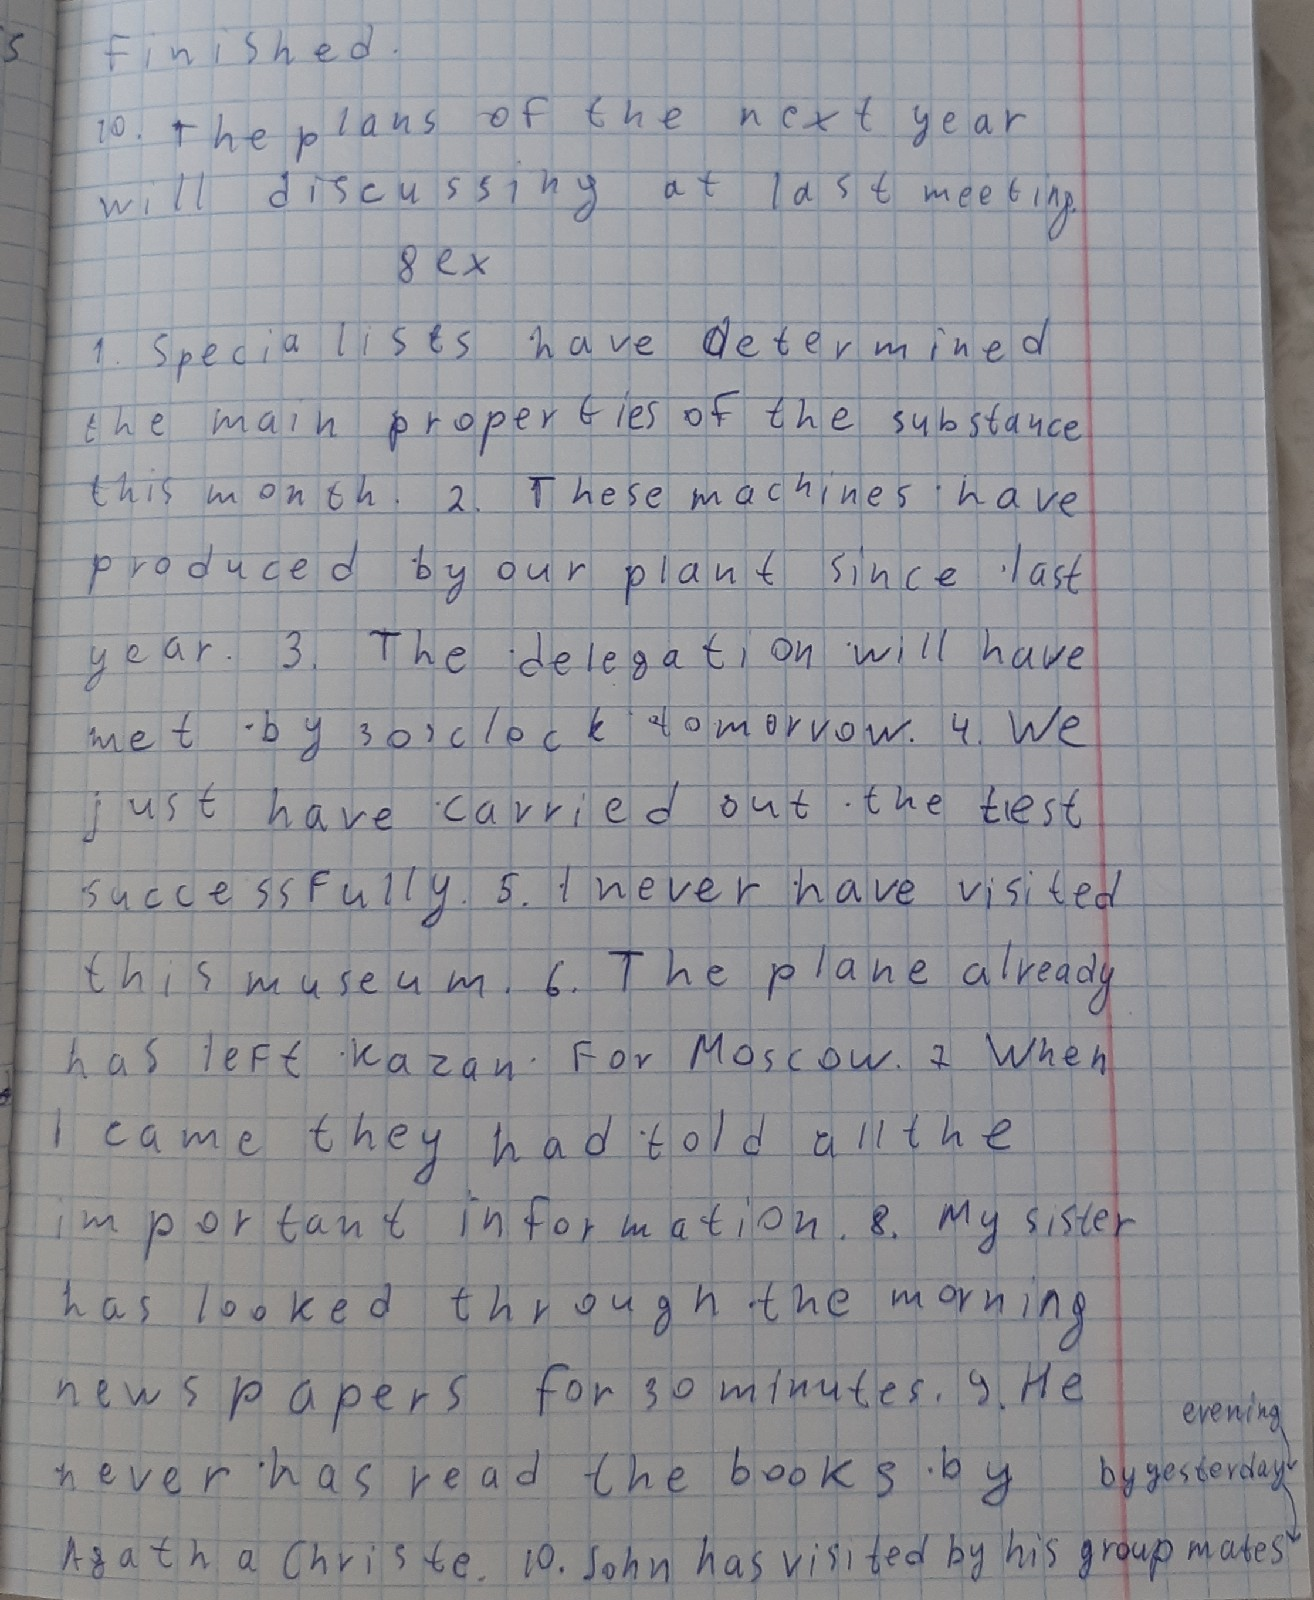 s
finished.
10. The plans of the next year
will discussing at last meeting.
8 ex
1. Specialists have determined
the main properties of the substance
this month. 2. These machines have
produced by our plant since last
year. 3. The delegation will have
met by 3 o'clock tomorrow. 4. We
just have carried out the test
successfully. 5. I never have visited
this museum. 6. The plane already
has left Kazan for Moscow. 7 When
I came they had told all the
important information. 8. My sister
has looked through the morning
newspapers for 30 minutes. 9. He
never has read the books by
Agatha Christe. 10. John has visited by his group mates
by yesterday
evening